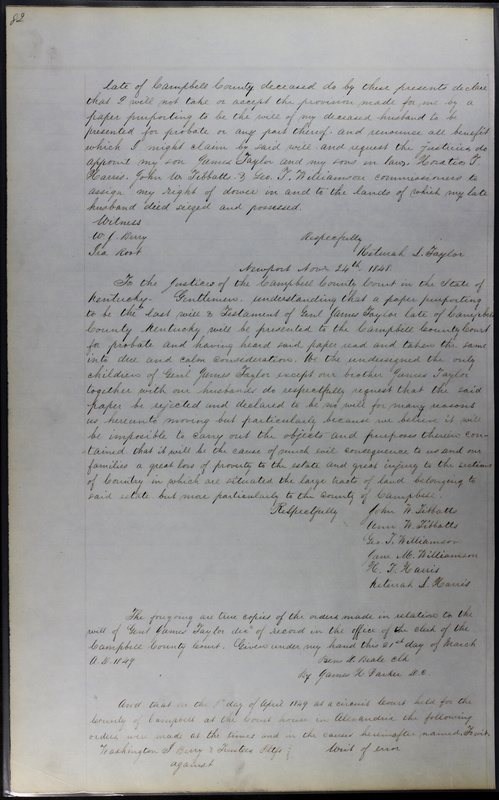 82
late of Campbell County deceased do by these presents declare
that I will not take or accept the provision made for me by a
paper purporting to be the will of my deceased husband to be
presented for probate or any part thereof and renounce all benefit
which I might claim by said will and request the justices do
appoint my son James Taylor and my sons in law, Horatio T.
Harris. John W. Tibbatts & Geo. T. Williamson commissioners to
assign my right of dower in and to the lands of which my late
husband died seized and possessed.
Witness
W. J. Berry Respectfully
Ira Root Keturah L. Taylor
Newport Nov. 24th, 1848.
To the Justices of the Campbell County Court in the State of
Kentucky. Gentlemen. understanding that a paper purporting
to be the last will & Testament of Genl James Taylor late of Campbell
County Kentucky will be presented to the Campbell County Court
for probate and having heard said paper read and taken the same
into due and calm consideration. We the undersigned the only
children of Genl James Taylor except our brother James Taylor
together with our husbands do respectfully request that the said
paper be rejected and declared to be no will for many reasons
us hereunto moving but particularly because we believe it will
be imposible to carry out the objects and purposes therein con-
tained that it will be the cause of much evil consequence to us and our
families a great loss of property to the estate and great injury to the sections
of Country in which are situated the large tracts of land belonging to
said estate but more particularly to the County of Campbell.
Respectfully John W. Tibbatts
Ann W. Tibbatts
Geo T. Williamson
Jane M. Williamson
H. T. Harris
Keturah L. Harris
The forgoing are true copies of the orders made in relation to the
will of Genl James Taylor decd of record in the office of the clerk of the
Campbell County Court. Given under my hand this 21st day of March
A. D. 1849 Ben D. Beale Clk
By James H. Parker D. C.
And that on the 1st day of April 1849 at a circuit Court held for the
County of Campbell at the Court house in Alexandria the following
orders were made at the times and in the causes hereinafter named. To wit.
Washington J Berry & Trustees Pltfs } Writ of error
against